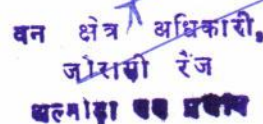 वन क्षेत्र अधिकारी,
जोरासी रेंज
अल्मोड़ा वन प्रभाग